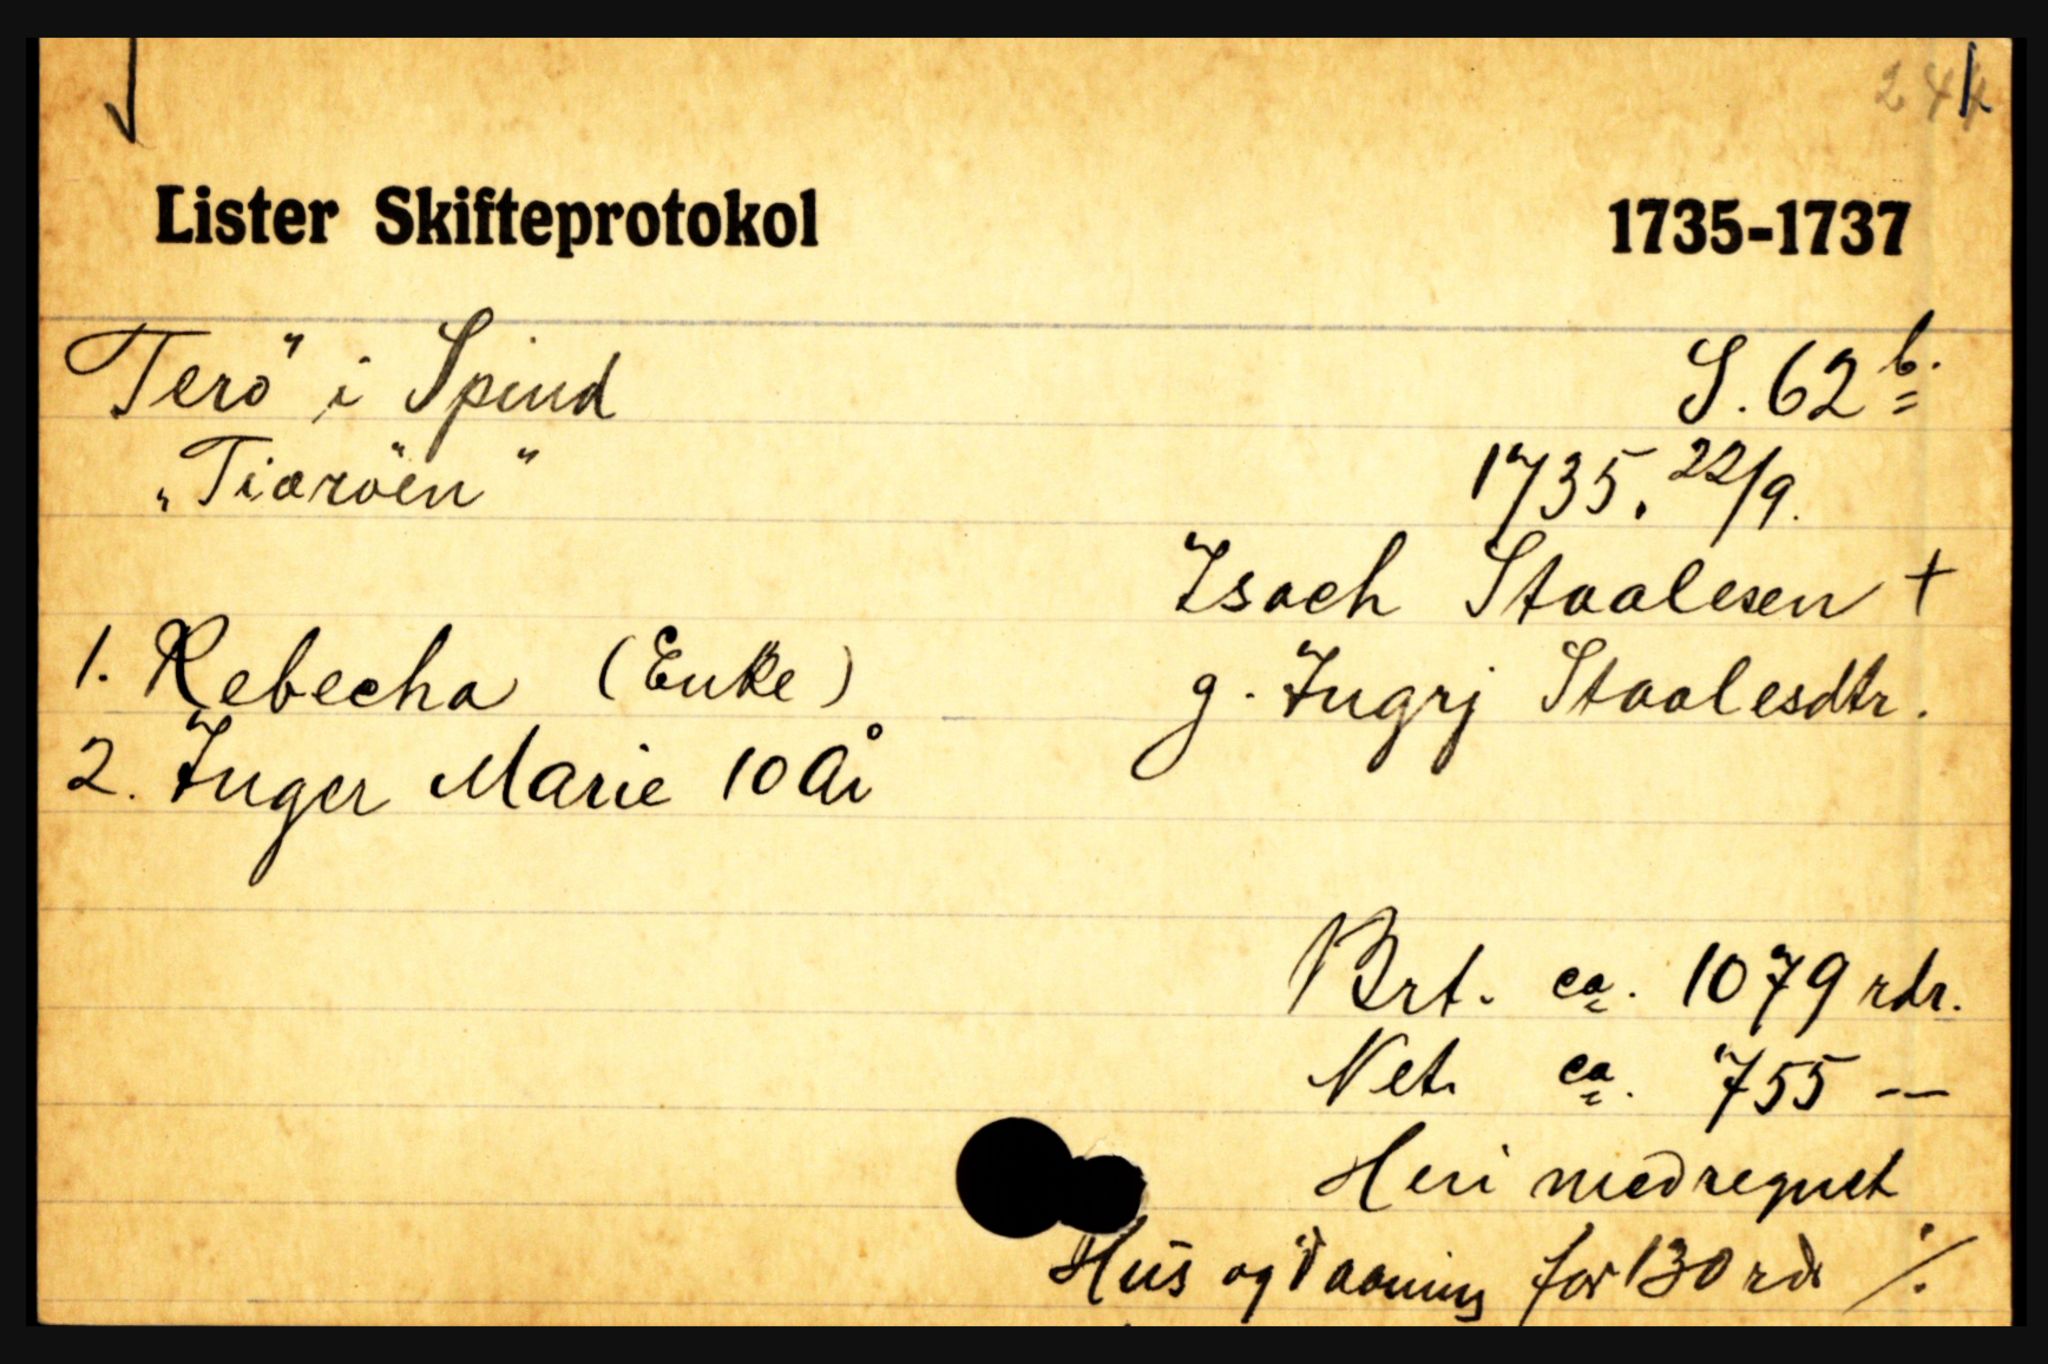 244
Lister Skifteprotokol 1735-1737
Terö i Spind S. 62 b.
"Tiaröen" 1735. 22/9.
Isach Staalesen +
1. Rebecha (Enke) g. Ingrj Staalesdtr.
2. Inger Marie 10 År
Brt. ca. 1079 rdr.
Net. ca. 755 —
Heri medregnet
Hus og for 130 rdr ./.